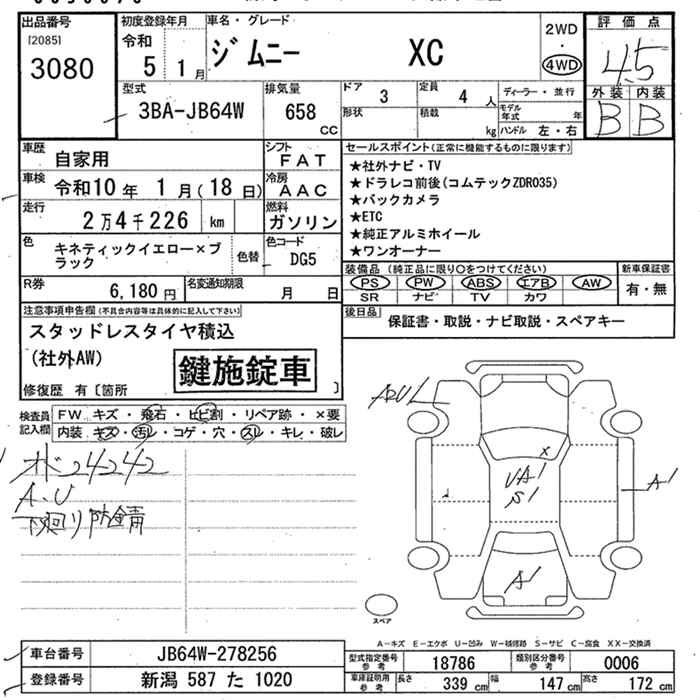 出品番号
[2085]
3080
初度登録年月
令和
5 1月
車名・グレード
ジムニー XC
2WD
・
4WD
評価点
4.5
外装 内装
B B
型式
3BA-JB64W
排気量
658
CC
ドア 3
定員 4 人
形状
積載 kg
ディーラー・並行
モデル年式 年
ハンドル 左・右
車歴
自家用
シフト
FAT
車検
令和10年 1月(18日)
冷房
AAC
走行
2万4千226 km
燃料
ガソリン
色
キネティックイエロー×ブラック
色替
色コード
DG5
R券
6,180円
名変通知期限
月 日
セールスポイント(正常に機能するものに限ります)
★社外ナビ・TV
★ドラレコ前後(コムテックZDR035)
★バックカメラ
★ETC
★純正アルミホイール
★ワンオーナー
装備品(純正品に限り○をつけてください)
PS PW ABS エアB AW
SR ナビ TV カワ
新車保証書
有・無
後日品
保証書・取説・ナビ取説・スペアキー
注意事項申告欄(不具合内容等は具体的に記入して下さい)
スタッドレスタイヤ積込
(社外AW)
鍵施錠車
修復歴 有〔箇所 〕
検査員記入欄
FW キズ・飛石・ヒビ割・リペア跡・×要
内装 キズ・汚レ・コゲ・穴・スレ・キレ・破レ
オド24242
A.U
下廻り防錆
A.U
X
UA1
S1
A1
A1
スペア
A-キズ E-エクボ U-凹み W-補修跡 S-サビ C-腐食 XX-交換済
車台番号
JB64W-278256
登録番号
新潟 587 た 1020
型式指定番号
参考
18786
類別区分番号
参考
0006
車庫証明用
参考
長さ 339 cm
幅 147 cm
高さ 172 cm